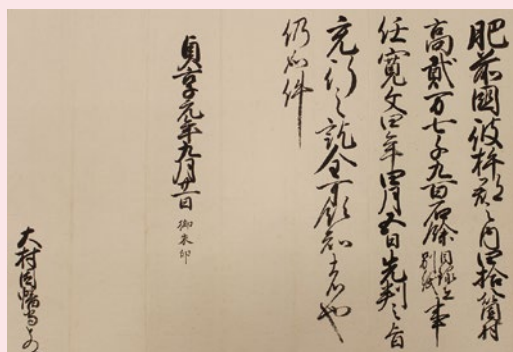 肥前國彼杵郡之内四拾箇村
高貳万七千九百石餘目録在別紙事
任寛文四年四月五日先判之旨
充行之訖全可領知者也
仍如件
貞享元年九月廿一日
御朱印
大村因幡守とのへ